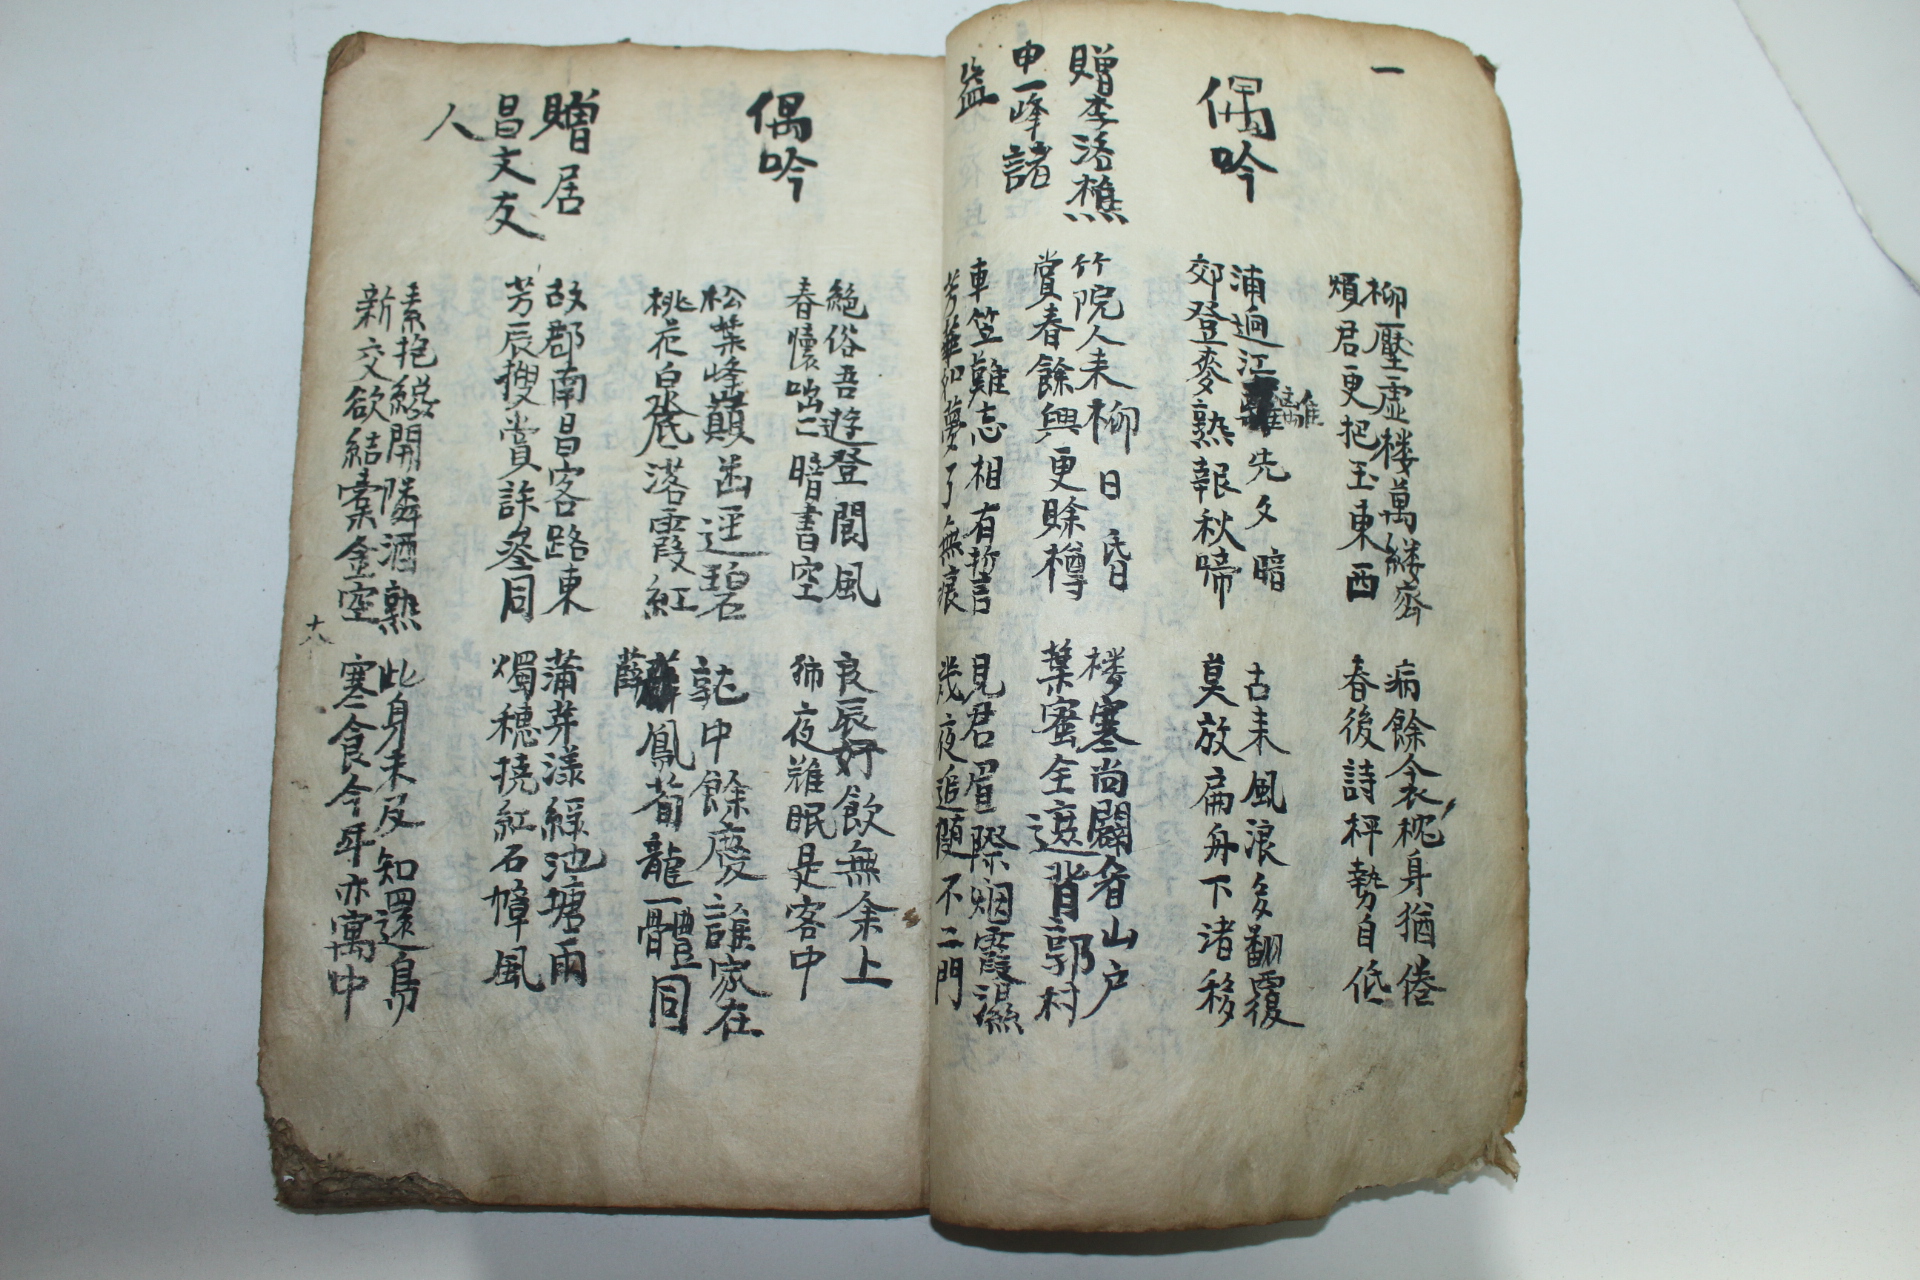 一
柳壓虛楼萬縷齊
病餘衾枕身猶倦
煩君更把玉東西
春後詩枰勢自低
偶吟
浦逈江籬先夕暗
古来風浪多翻覆
郊登麥熟報秋啼
莫放扁舟下渚移
贈李洛樵
申一峰諸
益
竹院人来柳日昏
楼寒尚闢看山户
賞春餘興更賒樽
葉蜜全遮背郭村
車笠難忘相有誓
見君眉際烟霞濕
芳華如夢了無痕
幾夜追随不二門
偶吟
絶俗吾遊登閬風
良辰好飲無余上
春懷咄二暗書空
獨夜難眠是客中
松葉峰巔幽逕碧
就中餘慶誰家在
桃花泉底落霞紅
薛鳳荀龍一體同
贈居
昌文友
人
故郡南昌客路東
蒲芽漾綠池塘雨
芳辰搜賞許參同
燭穗撓紅石幛風
素抱纔開隣酒熟
此身未及知還鳥
新交欲結橐金空
寒食今年亦寓中
十八